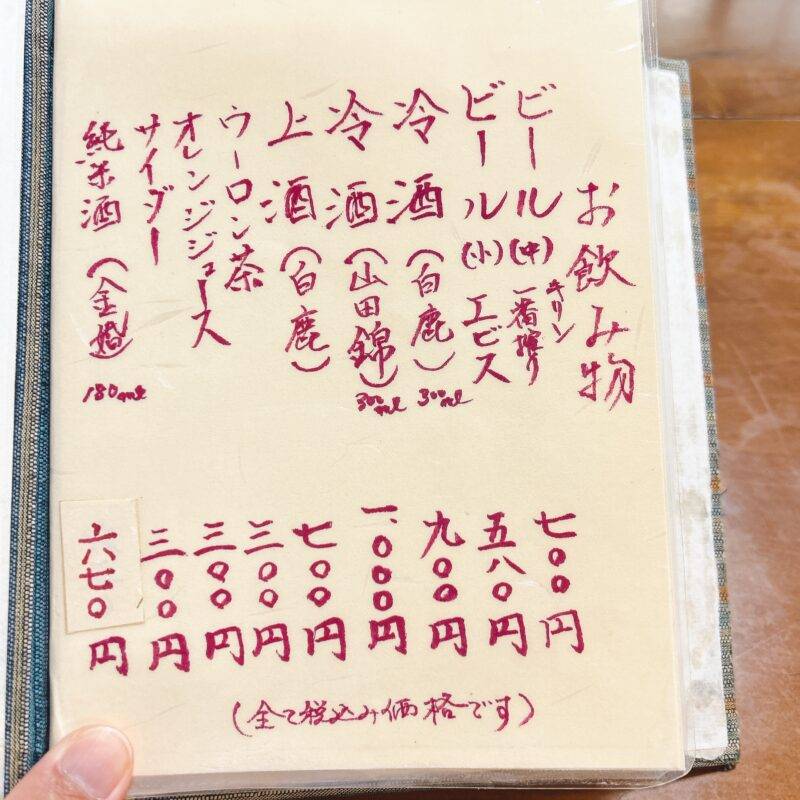 お飲み物
ビール(中) キリン 一番搾り 七〇〇円
ビール(小) エビス 五八〇円
冷酒(白鹿) 300ml 九〇〇円
冷酒(山田錦) 300ml 一、〇〇〇円
上酒(白鹿) 七〇〇円
ウーロン茶 三〇〇円
オレンジジュース 三〇〇円
サイダー 三〇〇円
純米酒(金婚) 180ml 六七〇円
(全て税込み価格です)